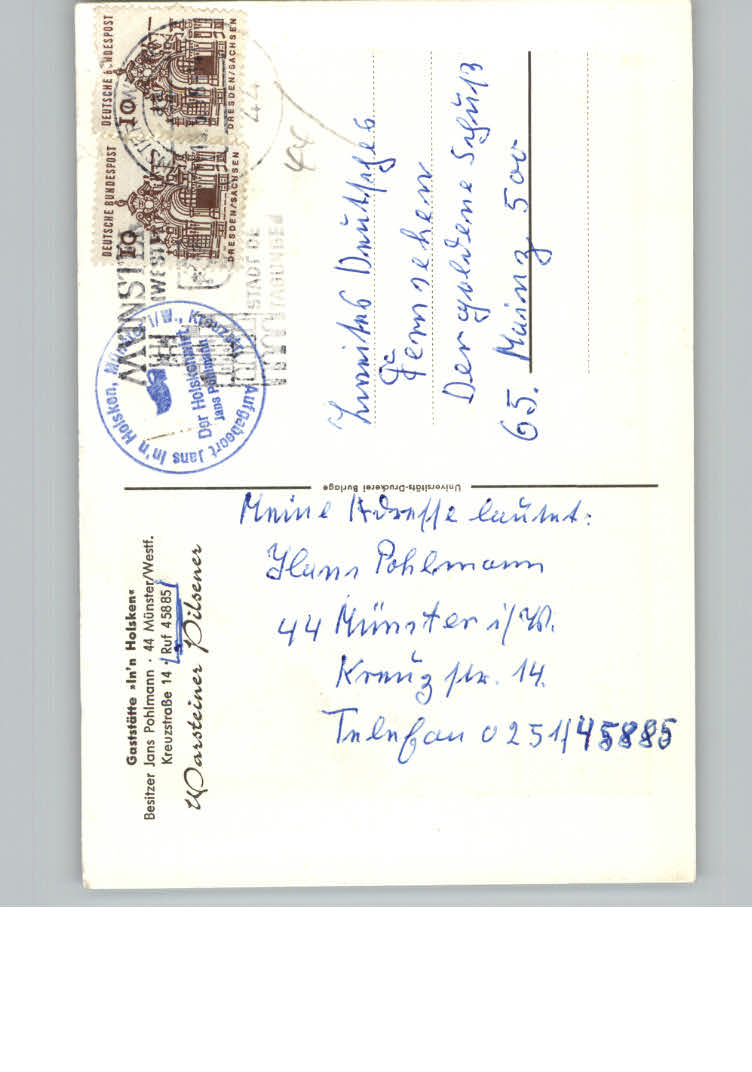 Gaststätte »In'n Holsken«
Besitzer Jans Pohlmann · 44 Münster/Westf.
Kreuzstraße 14 · Ruf 45885
Warsteiner Pilsener
Meine Adresse lautet:
Hans Pohlmann
44 Münster i/W.
Kreuzstr. 14.
Telefon 0251/45885
Universitäts-Druckerei Burlage
DEUTSCHE BUNDESPOST
10
DRESDEN/SACHSEN
DEUTSCHE BUNDESPOST
10
DRESDEN/SACHSEN
44
MÜNSTER
STADT DE
Aufgabeort Jans In'n Holsken, Münster i/W., Kreuzstr.
Der Holskenwirt
Jans Pohlmann
44
Zweites Deutsches
Fernsehen
Der goldene Schuß
65. Mainz 500